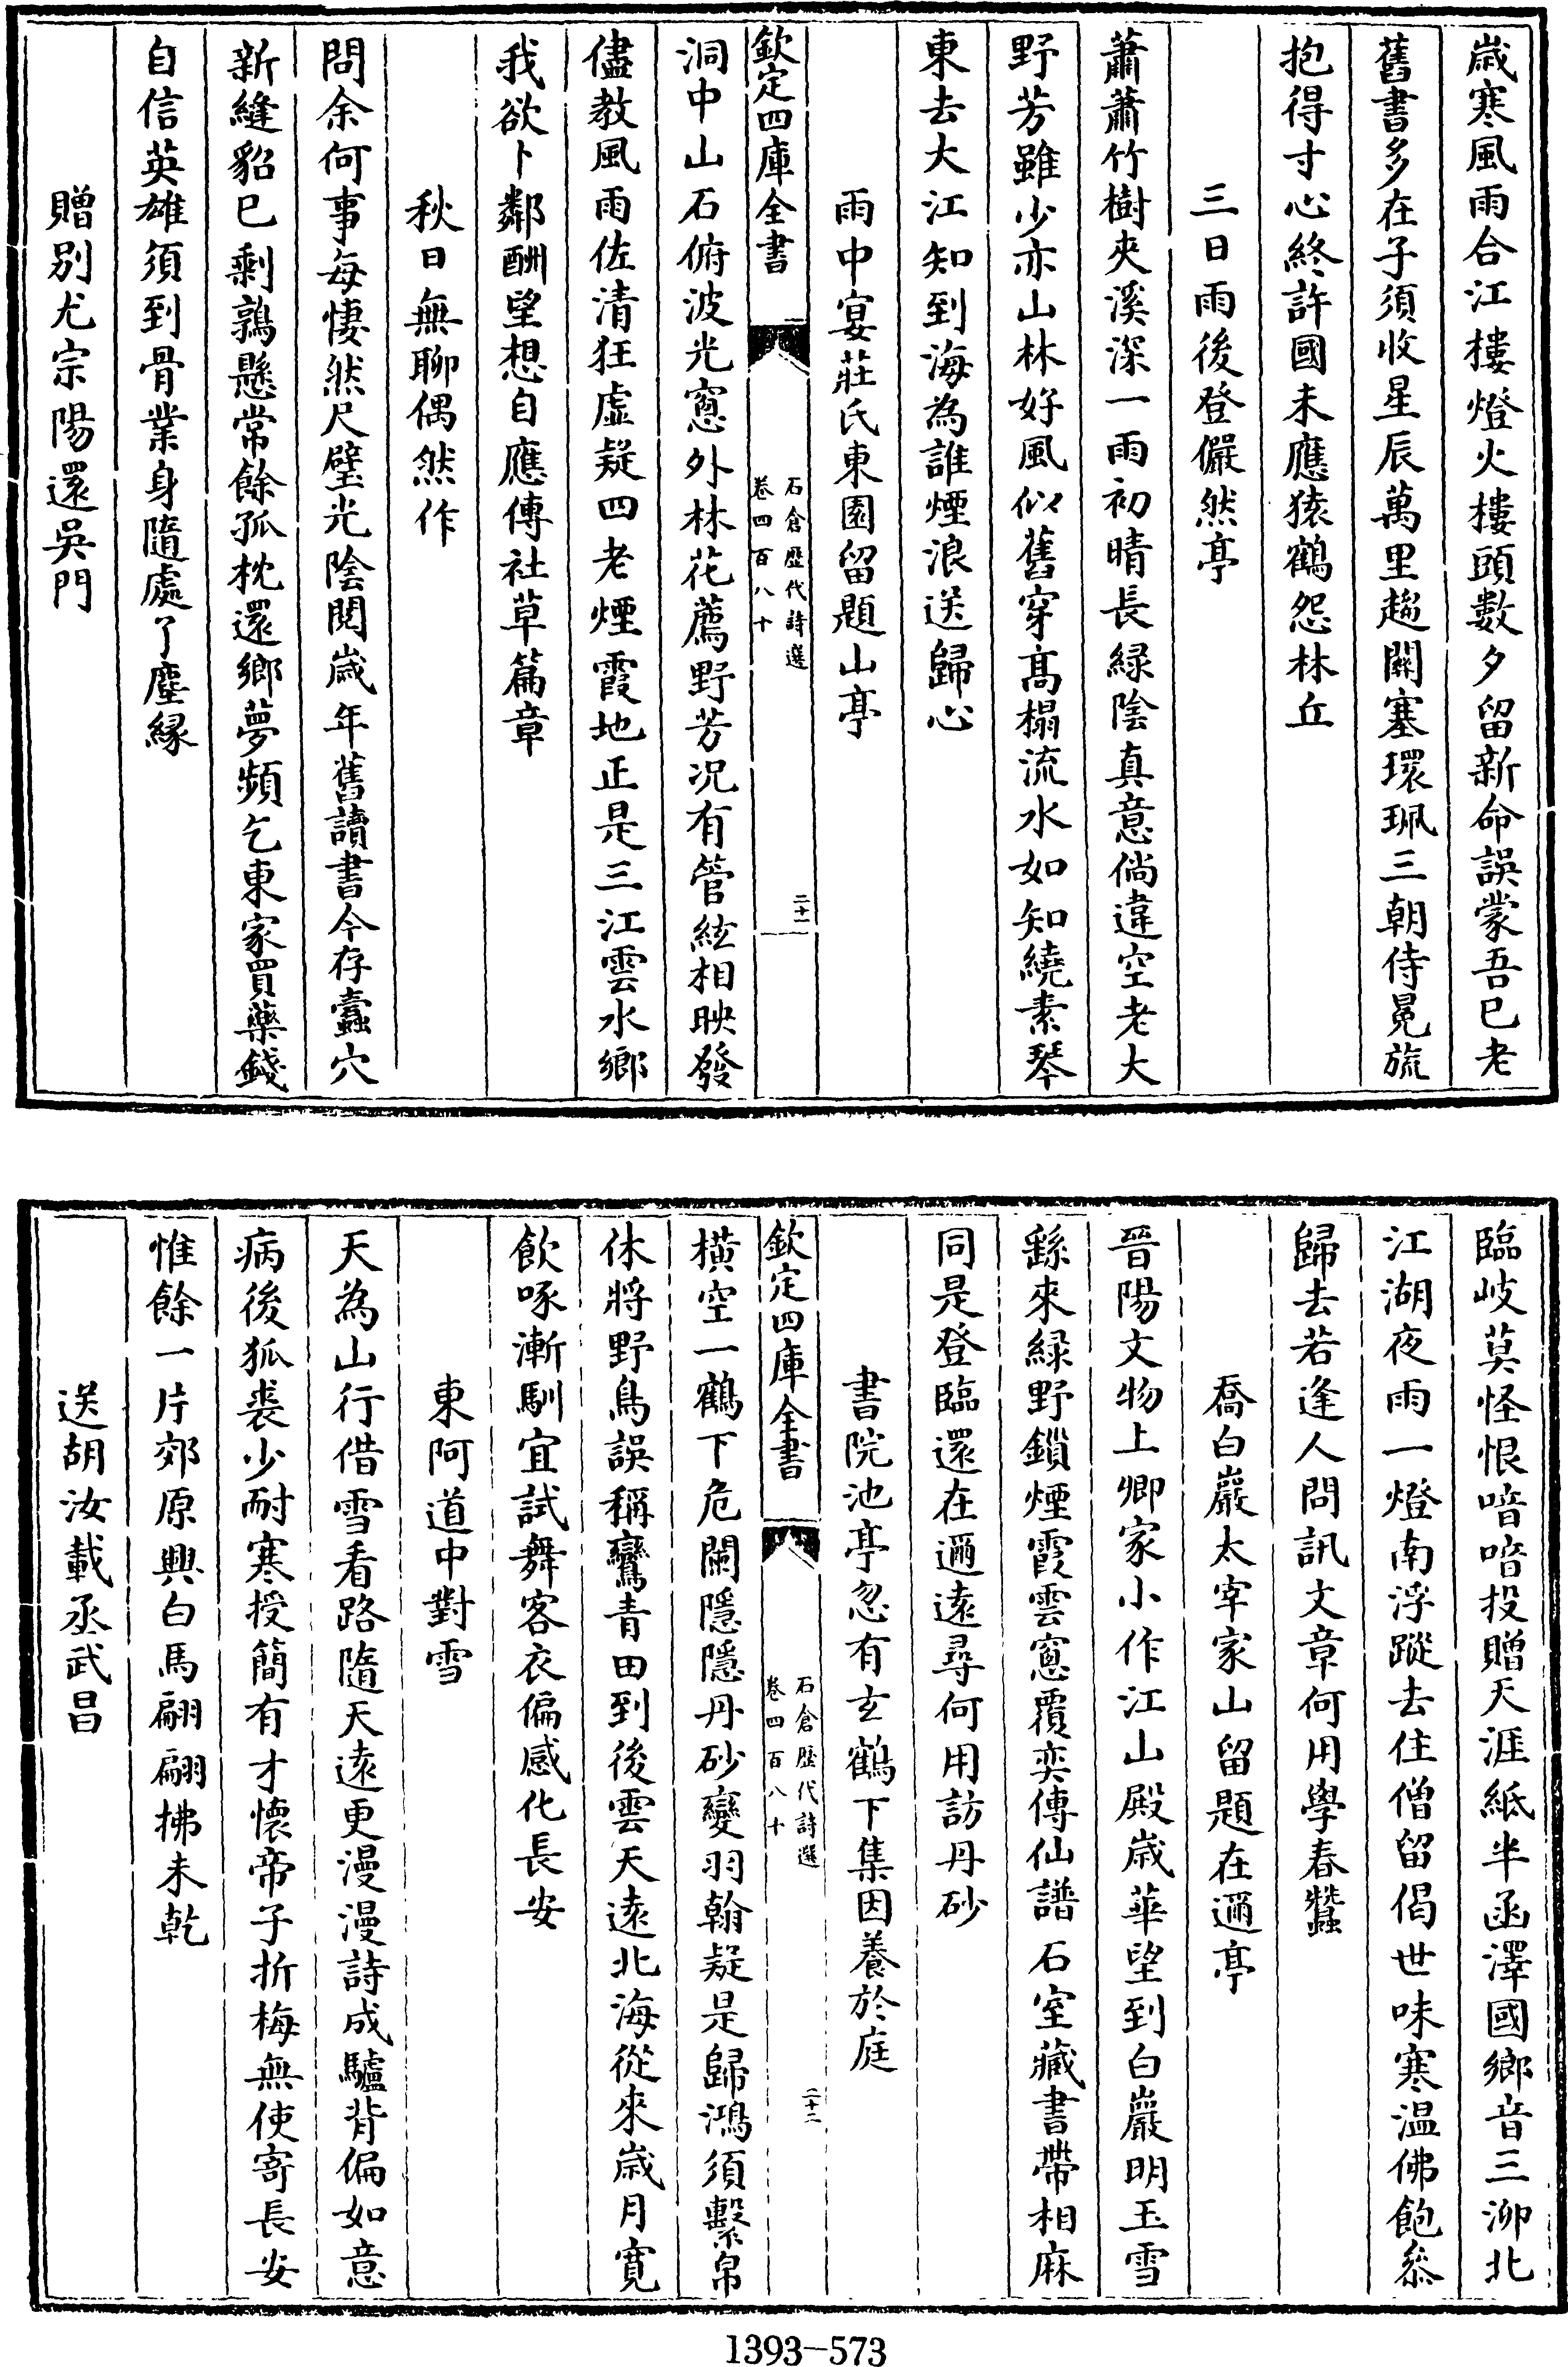 歳寒風雨合江樓燈火樓頭數夕留新命誤蒙吾已老
舊書多在子須收星辰萬里趨關塞環珮三朝侍冕旒
抱得寸心終許國未應猿鶴怨林丘
三日雨後登儼然亭
蕭蕭竹樹夾溪深一雨初晴長緑陰真意倘違空老大
野芳雖少亦山林好風似舊穿髙榻流水如知繞素琴
東去大江知到海為誰煙浪送歸心
雨中宴莊氏東園留題山亭
欽定四庫全書
石倉歴代詩選
卷四百八十
二十一
洞中山石俯波光窻外林花薦野芳况有管絃相映發
儘教風雨佐清狂虚疑四老煙霞地正是三江雲水鄉
我欲卜鄰酬望想自應傳社草篇章
秋日無聊偶然作
問余何事每悽然尺璧光陰閲歳年舊讀書今存蠧穴
新縫貂已剩鶉懸常餘孤枕還鄉夢頻乞東家買藥錢
自信英雄須到骨業身隨處了塵緣
贈别尤宗陽還吳門
臨岐莫怪恨喑喑投贈天涯紙半函澤國鄉音三泖北
江湖夜雨一燈南浮蹤去住僧留偈世味寒温佛飽叅
歸去若逢人問訊文章何用學春蠶
喬白巖太宰家山留題在邇亭
晉陽文物上卿家小作江山殿歳華望到白巖明玉雪
繇來緑野鎖煙霞雲窻覆奕傳仙譜石室藏書帶相麻
同是登臨還在邇逺尋何用訪丹砂
書院池亭忽有玄鶴下集因養於庭
欽定四庫全書
石倉歴代詩選
卷四百八十
二十二
横空一鶴下危闌隱隱丹砂變羽翰疑是歸鴻須繫帛
休將野鳥誤稱鸞青田到後雲天逺北海從來歳月寛
飲啄漸馴宜試舞客衣偏感化長安
東阿道中對雪
天為山行借雪看路隨天逺更漫漫詩成驢背偏如意
病後狐裘少耐寒授簡有才懷帝子折梅無使寄長安
惟餘一片郊原興白馬翩翩拂未乾
送胡汝載丞武昌
1393-573